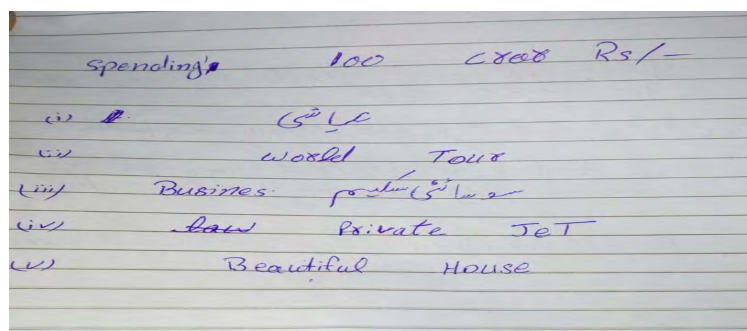 Spending's 100 croor Rs/-
(i) عیاشی
(ii) world Tour
(iii) Busines سوسائٹی سکیم
(iv) Private JeT
(v) Beautiful House